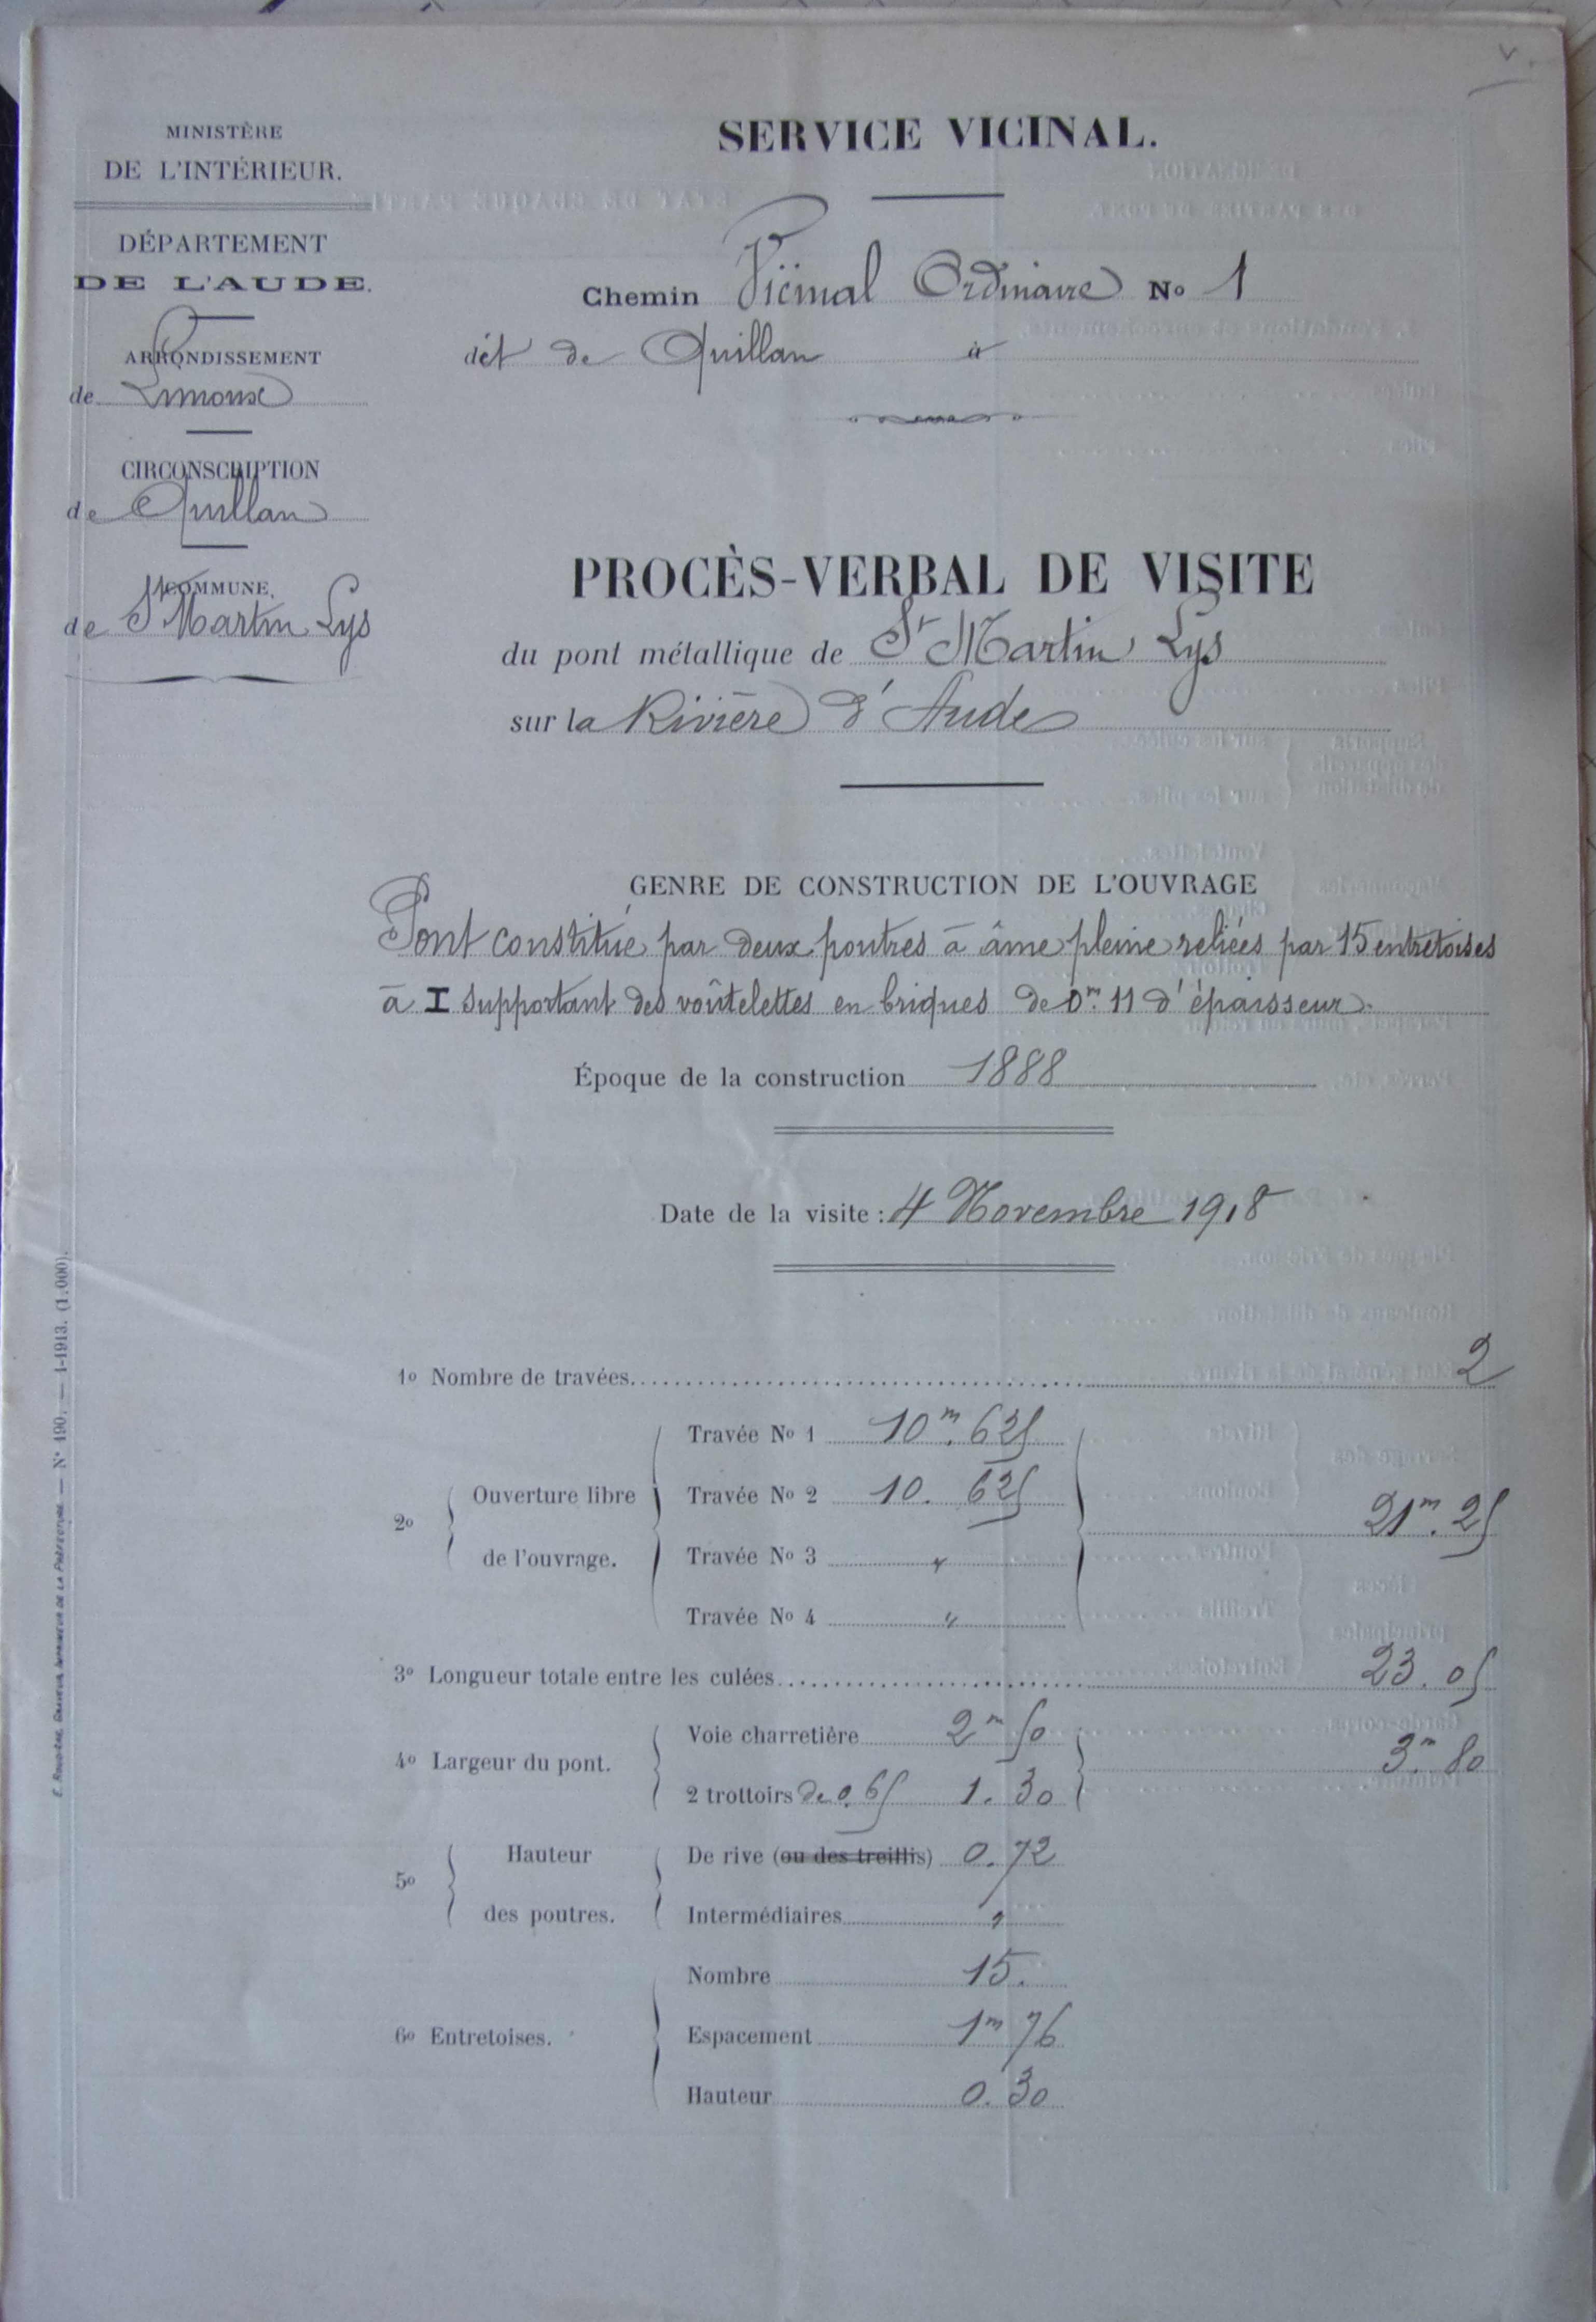 MINISTÈRE
DE L'INTÉRIEUR.
DÉPARTEMENT
DE L'AUDE.
ARRONDISSEMENT
de Limoux
CIRCONSCRIPTION
de Quillan
COMMUNE,
de St Martin Lys
SERVICE VICINAL.
Chemin Vicinal Ordinaire No 1
dét de Quillan à
PROCÈS-VERBAL DE VISITE
du pont métallique de St Martin Lys
sur la Rivière d'Aude
GENRE DE CONSTRUCTION DE L'OUVRAGE
Pont constitué par deux poutres à âme pleine reliées par 15 entretoises
à I supportant des voûtelettes en briques de 0m.11 d'épaisseur.
Époque de la construction 1888
Date de la visite : 4 Novembre 1918
1o Nombre de travées. 2
2o Ouverture libre de l'ouvrage.
Travée No 1 10m.625
Travée No 2 10. 625
Travée No 3 "
Travée No 4 "
21m.25
3o Longueur totale entre les culées 23.05
4o Largeur du pont.
Voie charretière 2m50
2 trottoirs de 0.65 1.30
3m.80
5o Hauteur des poutres.
De rive (ou des treillis) 0.72
Intermédiaires "
6o Entretoises.
Nombre 15.
Espacement 1m76
Hauteur 0.30
IMPRIMEUR DE LA PRÉFECTURE. — N° 190. — 1-1913. (1.000).